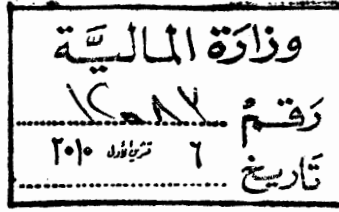 وزارة المالية
رقم
تاريخ ٦ تشرين الأول ٢٠١٠